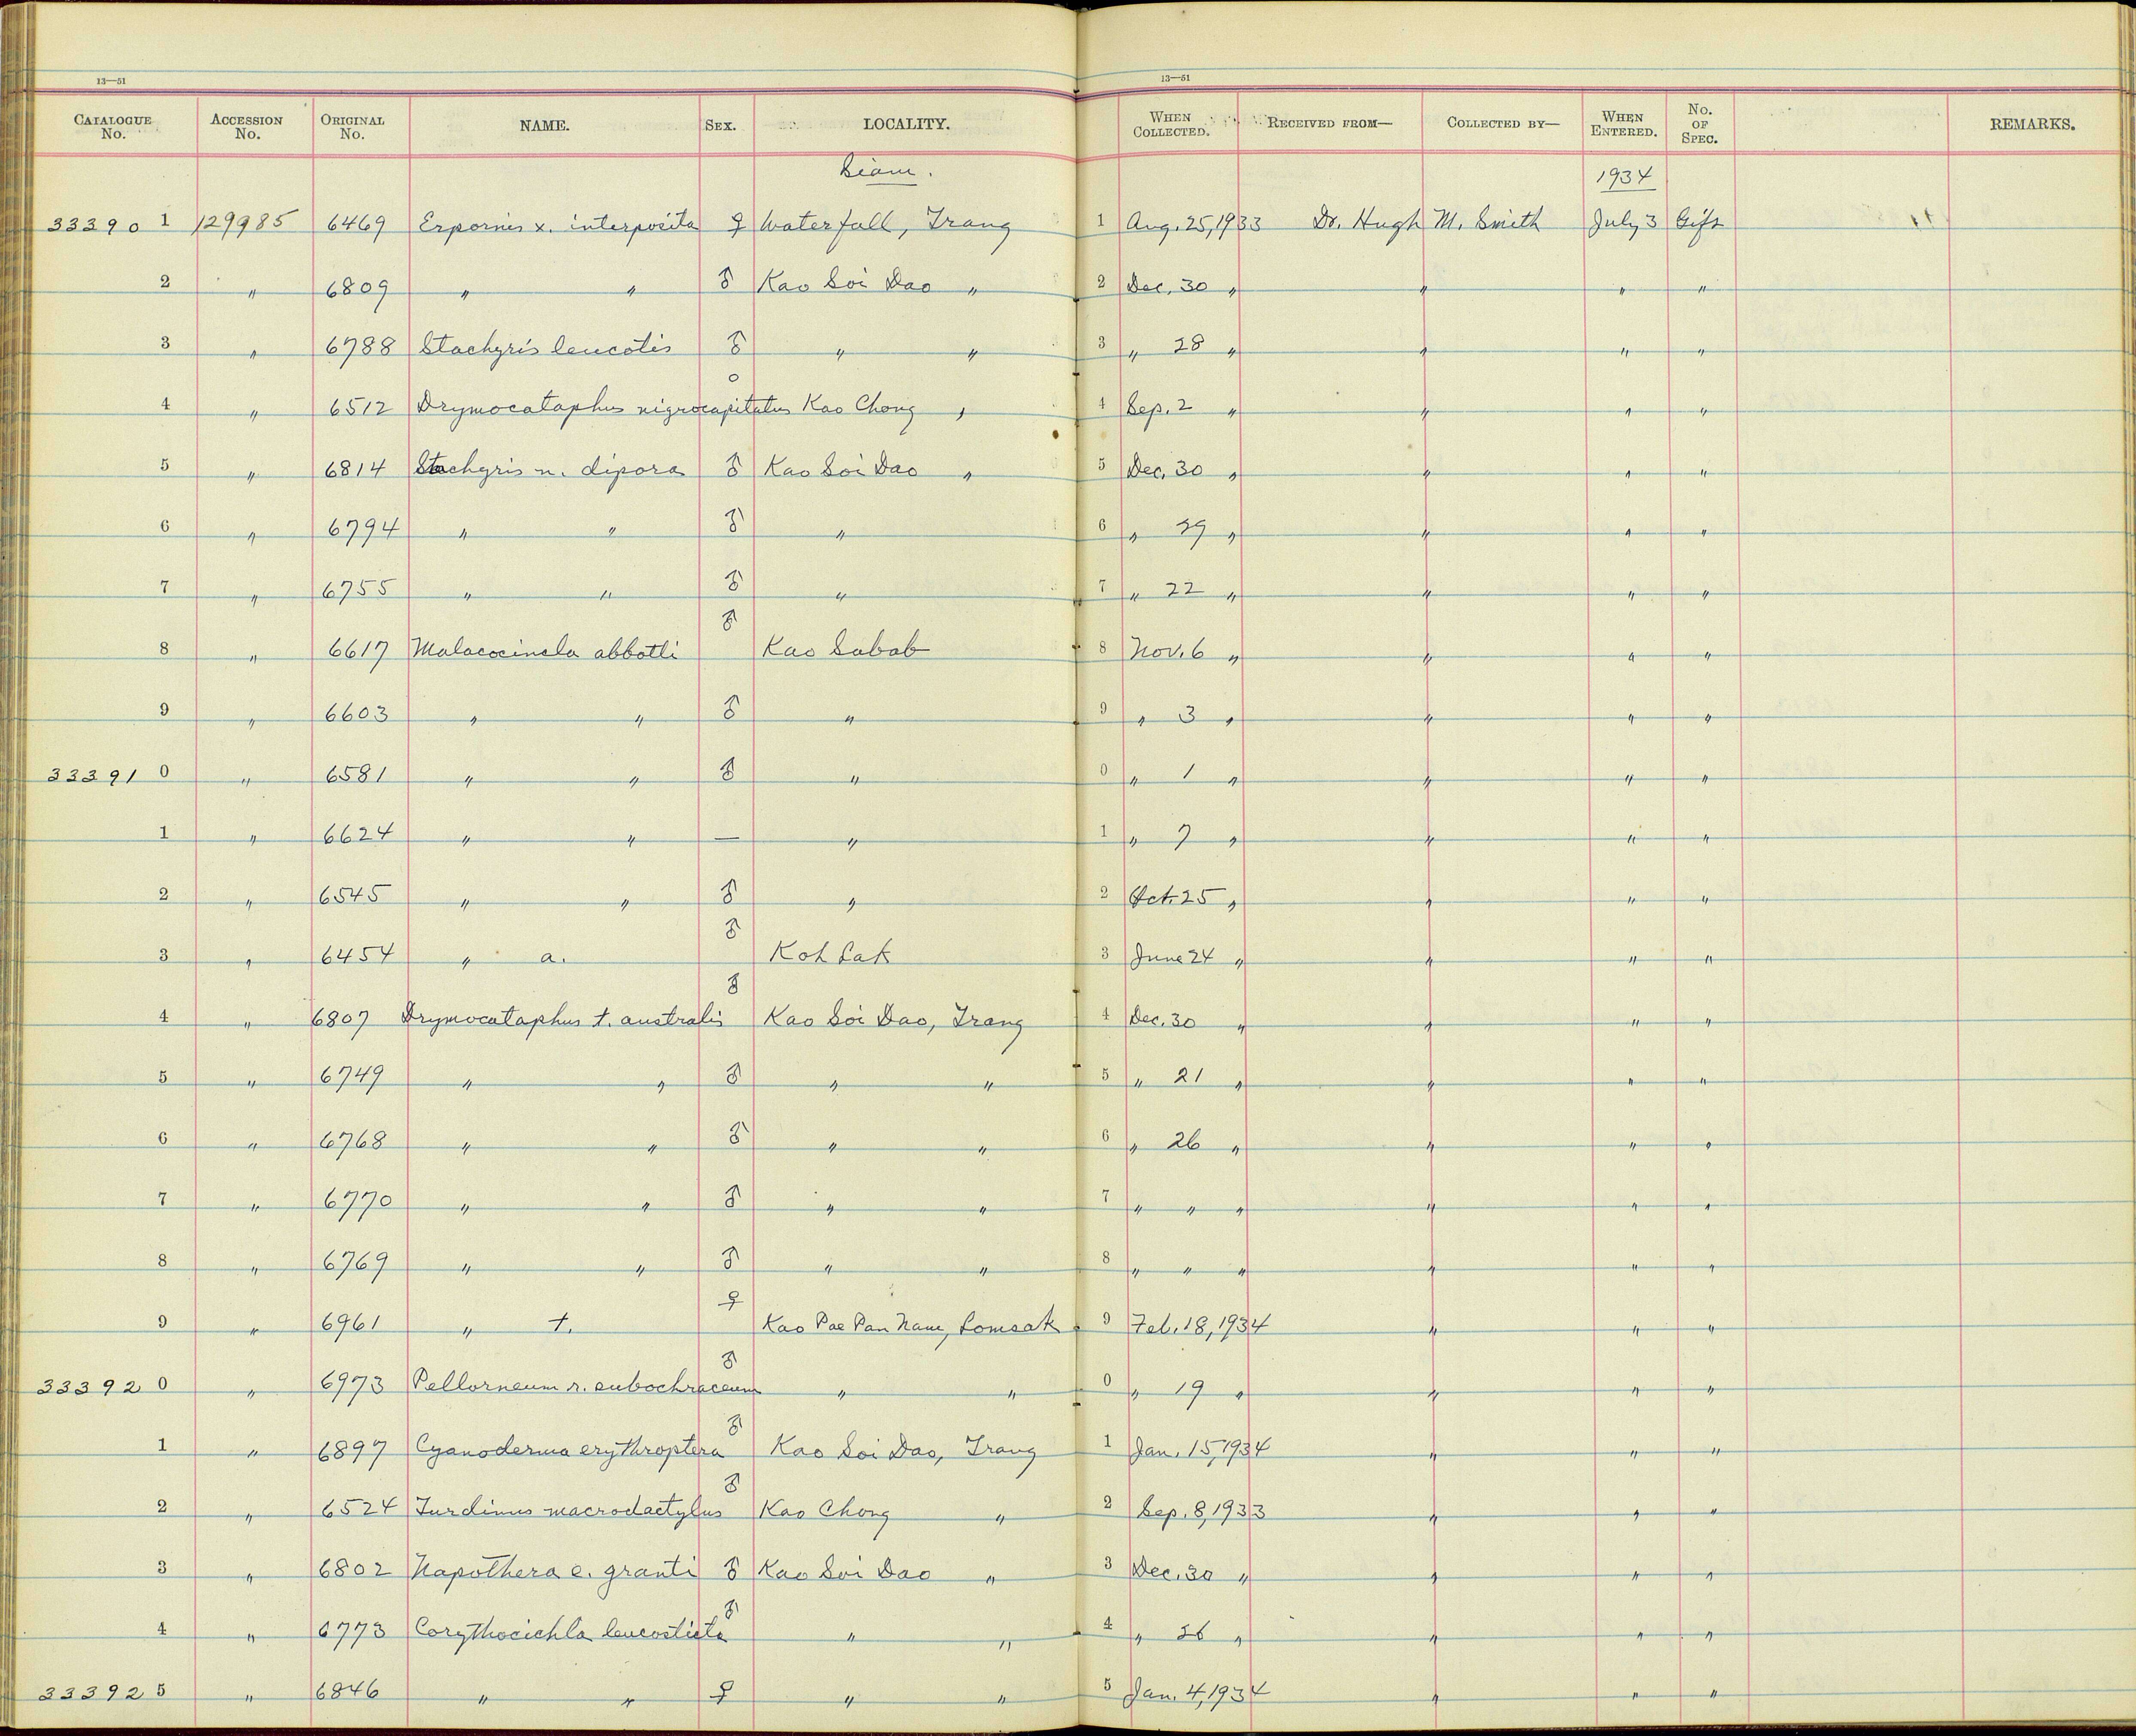 13—51 13—51
CATALOGUE No. ACCESSION No. ORIGINAL No. NAME. SEX. LOCALITY. WHEN COLLECTED. RECEIVED FROM— COLLECTED BY— WHEN ENTERED. No. OF SPEC. REMARKS.
Siam. 1934
33390 1 129985 6469 Erpornis x. interposita ♀ Waterfall, Trang 1 Aug. 25, 1933 Dr. Hugh M. Smith July 3 Gift
2 " 6809 " " ♂ Kao Soi Dao " 2 Dec. 30 " " " "
3 " 6788 Stachyris leucotis ♂ " " 3 " 28 " " " "
4 " 6512 Drymocataphus nigrocapitatus Kao Chong " 4 Sep. 2 " " " "
5 " 6814 Stachyris n. dipora ♂ Kao Soi Dao " 5 Dec. 30 " " " "
6 " 6794 " " ♂ " 6 " 29 " " " "
7 " 6755 " " ♂ " 7 " 22 " " " "
8 " 6617 Malacocincla abbotti ♂ Kao Sabab 8 Nov. 6 " " " "
9 " 6603 " " ♂ " 9 " 3 " " " "
33391 0 " 6581 " " ♂ " 0 " 1 " " " "
1 " 6624 " " — " 1 " 7 " " " "
2 " 6545 " " ♂ " 2 Oct. 25 " " " "
3 " 6454 " a. ♂ Koh Lak 3 June 24 " " " "
4 " 6807 Drymocataphus t. australis ♂ Kao Soi Dao, Trang 4 Dec. 30 " " " "
5 " 6749 " " ♂ " " 5 " 21 " " " "
6 " 6768 " " ♂ " " 6 " 26 " " " "
7 " 6770 " " ♂ " " 7 " " " " " "
8 " 6769 " " ♂ " " 8 " " " " " "
9 " 6961 " t. ♀ Kao Pae Pan Nam, Lomsak 9 Feb. 18, 1934 " " "
33392 0 " 6973 Pellorneum r. subochraceum ♂ " " 0 " 19 " " " "
1 " 6897 Cyanoderma erythroptera ♂ Kao Soi Dao, Trang 1 Jan. 15, 1934 " " "
2 " 6524 Turdinus macrodactylus ♂ Kao Chong " 2 Sep. 8, 1933 " " "
3 " 6802 Napothera e. granti ♂ Kao Soi Dao " 3 Dec. 30 " " " "
4 " 6773 Corythocichla leucosticta ♂ " " 4 " 26 " " " "
33392 5 " 6846 " " ♀ " " 5 Jan. 4, 1934 " " "